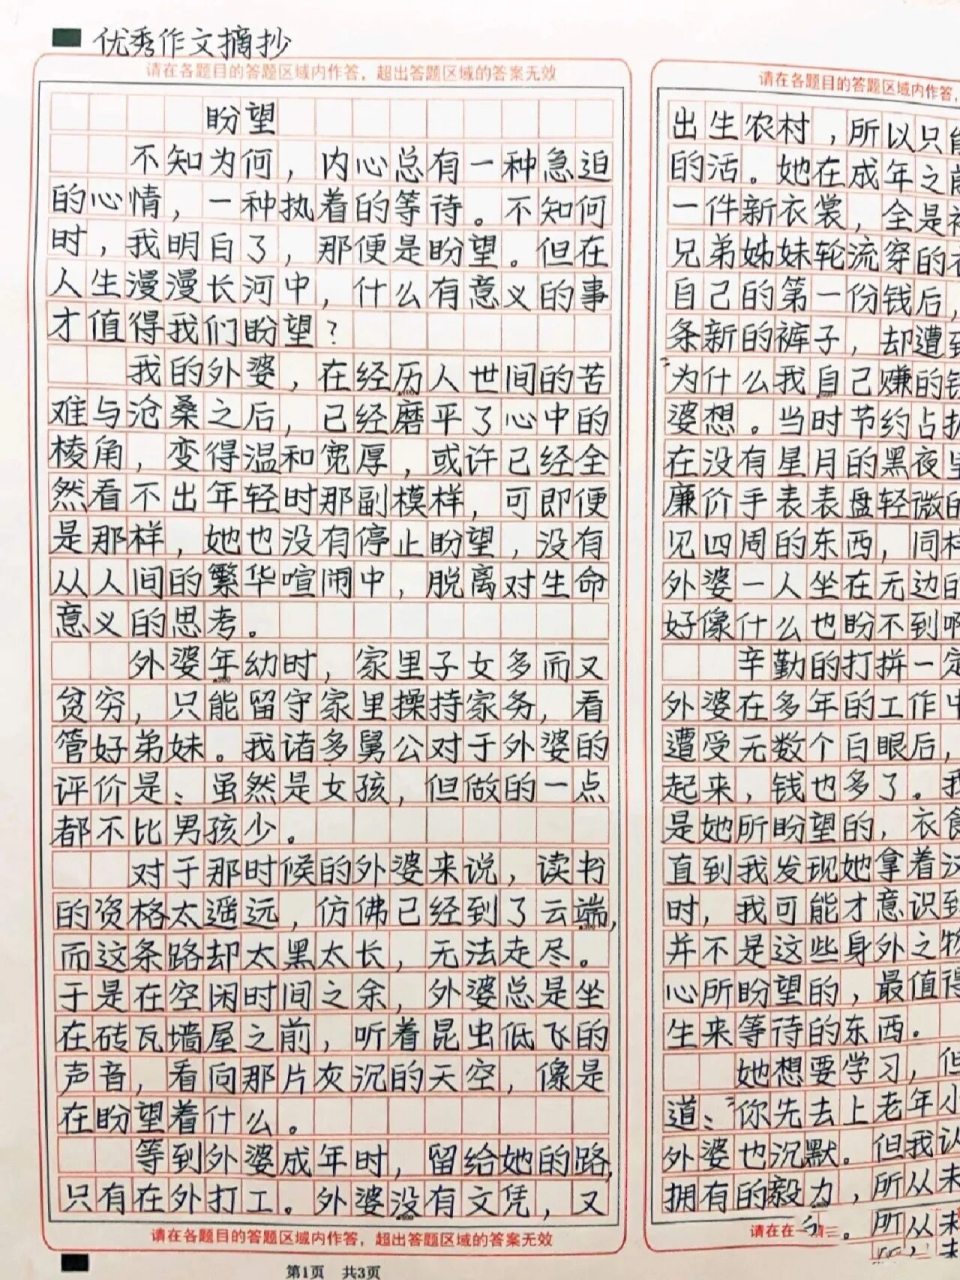 优秀作文摘抄
请在各题目的答题区域内作答，超出答题区域的答案无效
盼望
不知为何，内心总有一种急迫
的心情，一种执着的等待。不知何
时，我明白了，那便是盼望。但在
人生漫漫长河中，什么有意义的事
才值得我们盼望？
我的外婆，在经历人世间的苦
难与沧桑之后，已经磨平了心中的
棱角，变得温和宽厚，或许已经全
然看不出年轻时那副模样，可即便
是那样，她也没有停止盼望，没有
从人间的繁华喧闹中，脱离对生命
意义的思考。
外婆年幼时，家里子女多而又
贫穷，只能留守家里操持家务，看
管好弟妹。我诸多舅公对于外婆的
评价是：虽然是女孩，但做的一点
都不比男孩少。
对于那时候的外婆来说，读书
的资格太遥远，仿佛已经到了云端，
而这条路却太黑太长，无法走尽。
于是在空闲时间之余，外婆总是坐
在砖瓦墙屋之前，听着昆虫低飞的
声音，看向那片灰沉的天空，像是
在盼望着什么。
等到外婆成年时，留给她的路，
只有在外打工。外婆没有文凭，又
请在各题目的答题区域内作答，超出答题区域的答案无效
第1页 共3页
请在各题目的答题区域内作答，
出生农村，所以只能
的活。她在成年之前
一件新衣裳，全是
兄弟姊妹轮流穿的衣
自己的第一份钱后，
条新的裤子，却遭到
"为什么我自己赚的钱
婆想。当时节约占
在没有星月的黑夜里
廉价手表表盘轻微的
见四周的东西，同样
外婆一人坐在无边的
好像什么也盼不到啊
辛勤的打拼一定
外婆在多年的工作中
遭受无数个白眼后，
起来，钱也多了。我
是她所盼望的，衣食
直到我发现她拿着汉
时，我可能才意识到
并不是这些身外之物
心所盼望的，最值得
生来等待的东西。
她想要学习，但
道："你先去上老年小
外婆也沉默。但我认
拥有的毅力，所从未
所从未
请在